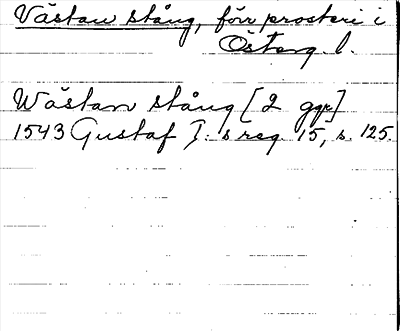 Västan stång, förr prosteri i
Österg. l.
Wästan stång [2 ggr]
1543 Gustaf I:s reg. 15, s. 125.